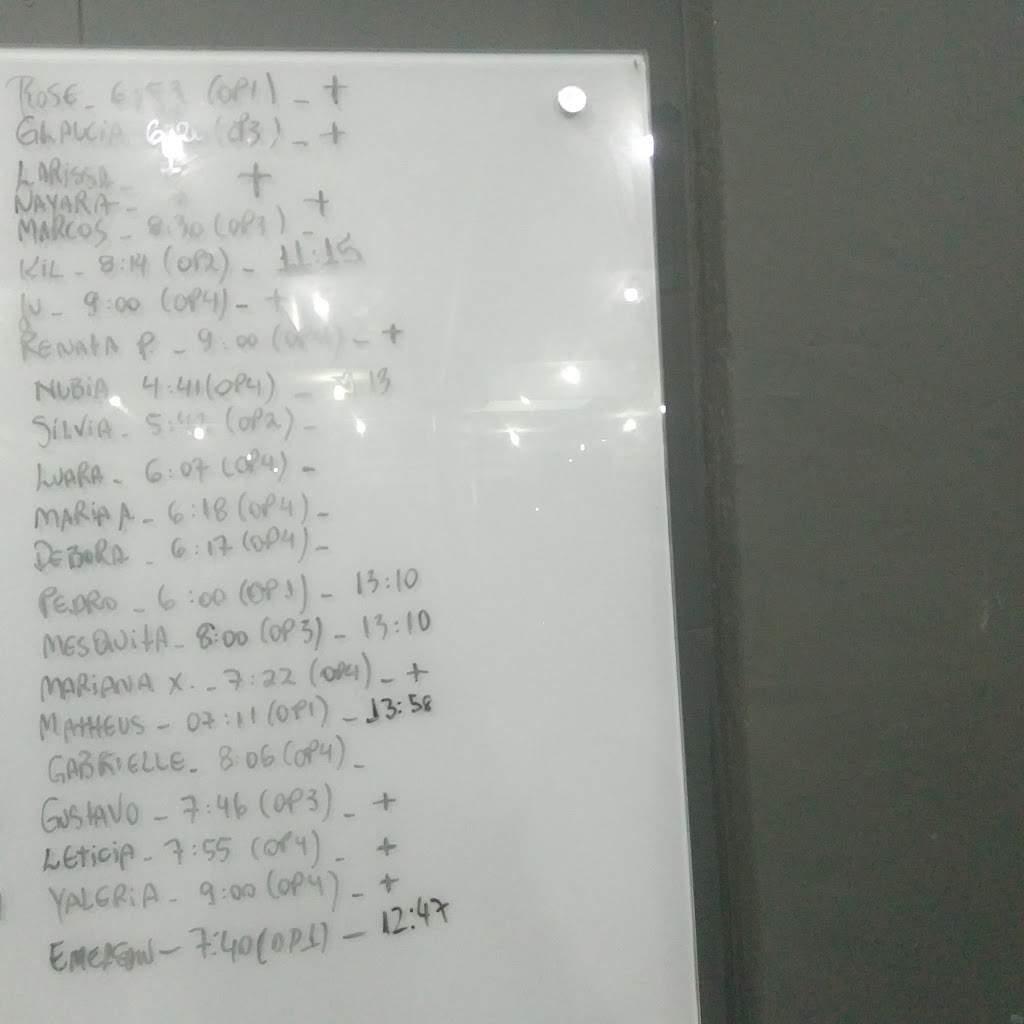 ROSE - 6:53 (OP1) - +
GLAUCIA (OP3) - +
LARISSA - +
NAYARA - +
MARCOS - 8:30 (OP1) -
KIL - 8:14 (OP2) - 11:15
JU - 9:00 (OP4) - +
RENATA P. - 9:00 (OP4) - +
NUBIA 4:41 (OP4) - 13
SILVIA - (OP2) -
LUARA - 6:07 (OP4) -
MARIA A - 6:18 (OP4) -
DEBORA - 6:17 (OP4) -
PEDRO - 6:00 (OP1) - 13:10
MESQUITA - 8:00 (OP3) - 13:10
MARIANA X. - 7:22 (OP4) - +
MATHEUS - 07:11 (OP1) - 13:58
GABRIELLE - 8:06 (OP4) -
GUSTAVO - 7:46 (OP3) - +
LETICIA - 7:55 (OP4) - +
VALERIA - 9:00 (OP4) - +
EMERSON - 7:40 (OP1) - 12:47